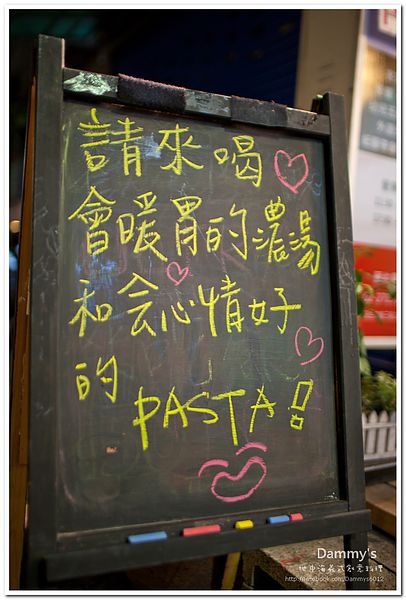 請來喝
會暖胃的濃湯
和会心情好
的 PASTA!
Dammy's
地中海義式創意料理
http://facebook.com/Dammys6012